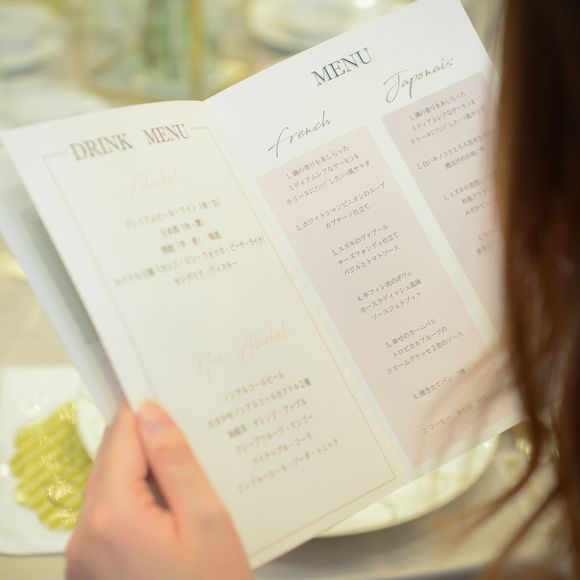 DRINK MENU
Alcohol
プレミアムビール・ワイン（赤・白）
日本酒（冷・燗）
焼酎（芋・麦）・梅酒
カクテル5種（カシス・ジン・ウォッカ・ピーチ・ライチ）
サングリア・ウィスキー
Non Alcohol
ノンアルコールビール
おまかせノンアルコールカクテル2種
烏龍茶・オレンジ・アップル
グレープフルーツ・マンゴー
パイナップル・コーク
ジンジャーエール・ソーダ・トニック
MENU
French
1. 磯の香りをあしらった
ミディアムレアなサーモン&
テリーヌにアレンジした
2. ホワイトシャンピニオンのスープ
カプチーノ仕立て
3. スズキのヴァプール
チーズフォンデュ仕立て
バジルとトマトソース
4. 牛フィレ肉のポワレ
ホースラディッシュ風味
ソースジュドブッフ
5. 幸せのカーニバル
トロピカルフルーツの
クリームグラッセ2色のソース
6. 焼きたてパン 2種
7. コーヒー
Japonais
1. 磯の香りをあしらった
ミディアムレアなサーモン&
テリーヌにアレンジした
2. 白いキノコととろろ昆布
3. スズキの